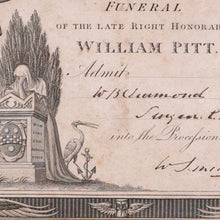 FUNERAL
OF THE LATE RIGHT HONORA
WILLIAM PITT.
Admit
W B Diamond
Surgeon
into the Procession